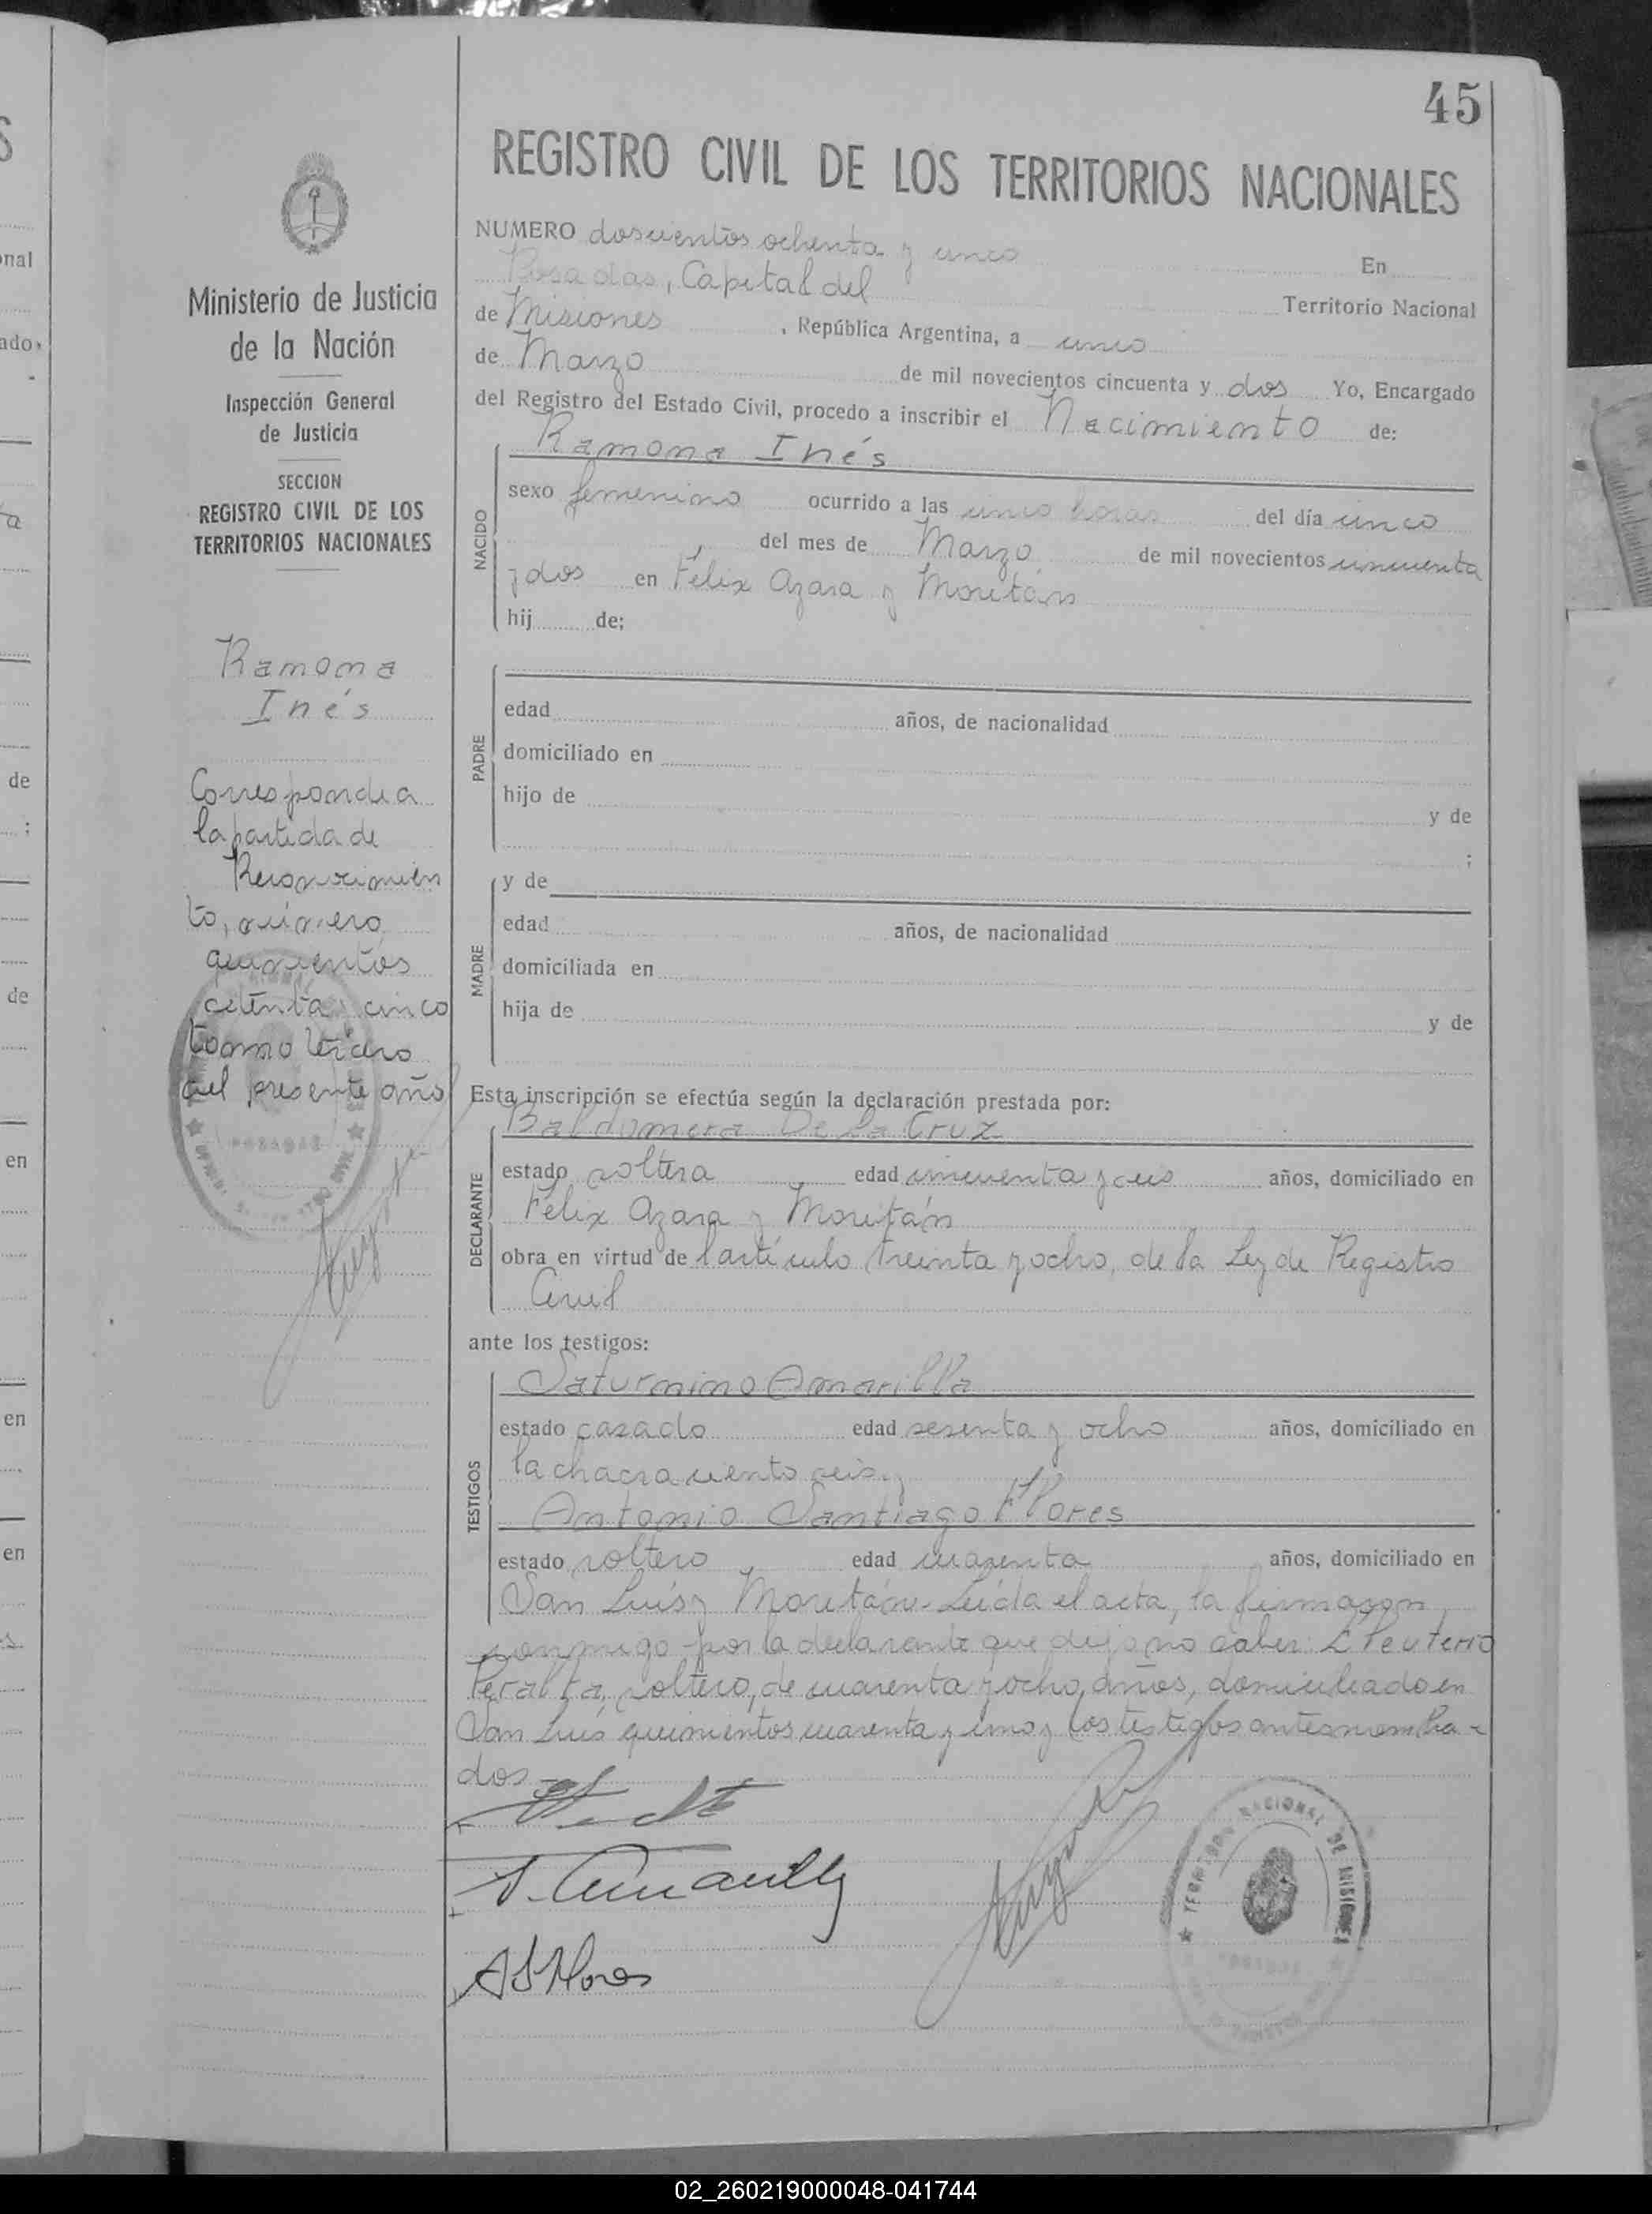 45
REGISTRO CIVIL DE LOS TERRITORIOS NACIONALES
Ministerio de Justicia
de la Nación
Inspección General
de Justicia
SECCION
REGISTRO CIVIL DE LOS
TERRITORIOS NACIONALES
Ramona
Inés
Corresponde a
la partida de
Reconocimien
to, número
quinientos
setenta y cinco
tomo tercero
del presente año
NUMERO doscientos ochenta y cinco En
Posadas, Capital del Territorio Nacional
de Misiones, República Argentina, a cinco
de Marzo de mil novecientos cincuenta y dos Yo, Encargado
del Registro del Estado Civil, procedo a inscribir el Nacimiento de:
Ramona Inés
NACIDO
sexo femenino ocurrido a las cinco horas del día cinco
del mes de Marzo de mil novecientos cincuenta
y dos en Félix Azara y Moritán
hij de:
PADRE
edad años, de nacionalidad
domiciliado en
hijo de y de
;
MADRE
y de
edad años, de nacionalidad
domiciliada en
hija de y de
Esta inscripción se efectúa según la declaración prestada por:
Baldomera De la Cruz
DECLARANTE
estado soltera edad cincuenta y seis años, domiciliado en
Félix Azara y Moritán
obra en virtud del artículo treinta y ocho, de la Ley de Registro
Civil
ante los testigos:
Saturnino Amarilla
TESTIGOS
estado casado edad sesenta y ocho años, domiciliado en
la chacra ciento seis y
Antonio Santiago Flores
estado soltero edad cuarenta años, domiciliado en
San Luis y Moritán. Leída el acta, la firmaron
conmigo por la declarante que dijo no saber: Eleuterio
Peralta, soltero, de cuarenta y ocho años, domiciliado en
San Luis quinientos cuarenta y uno y los testigos antes nombra-
dos.
S. Amarilla
A S Flores
TERRITORIO NACIONAL DE MISIONES
POSADAS
02_260219000048-041744